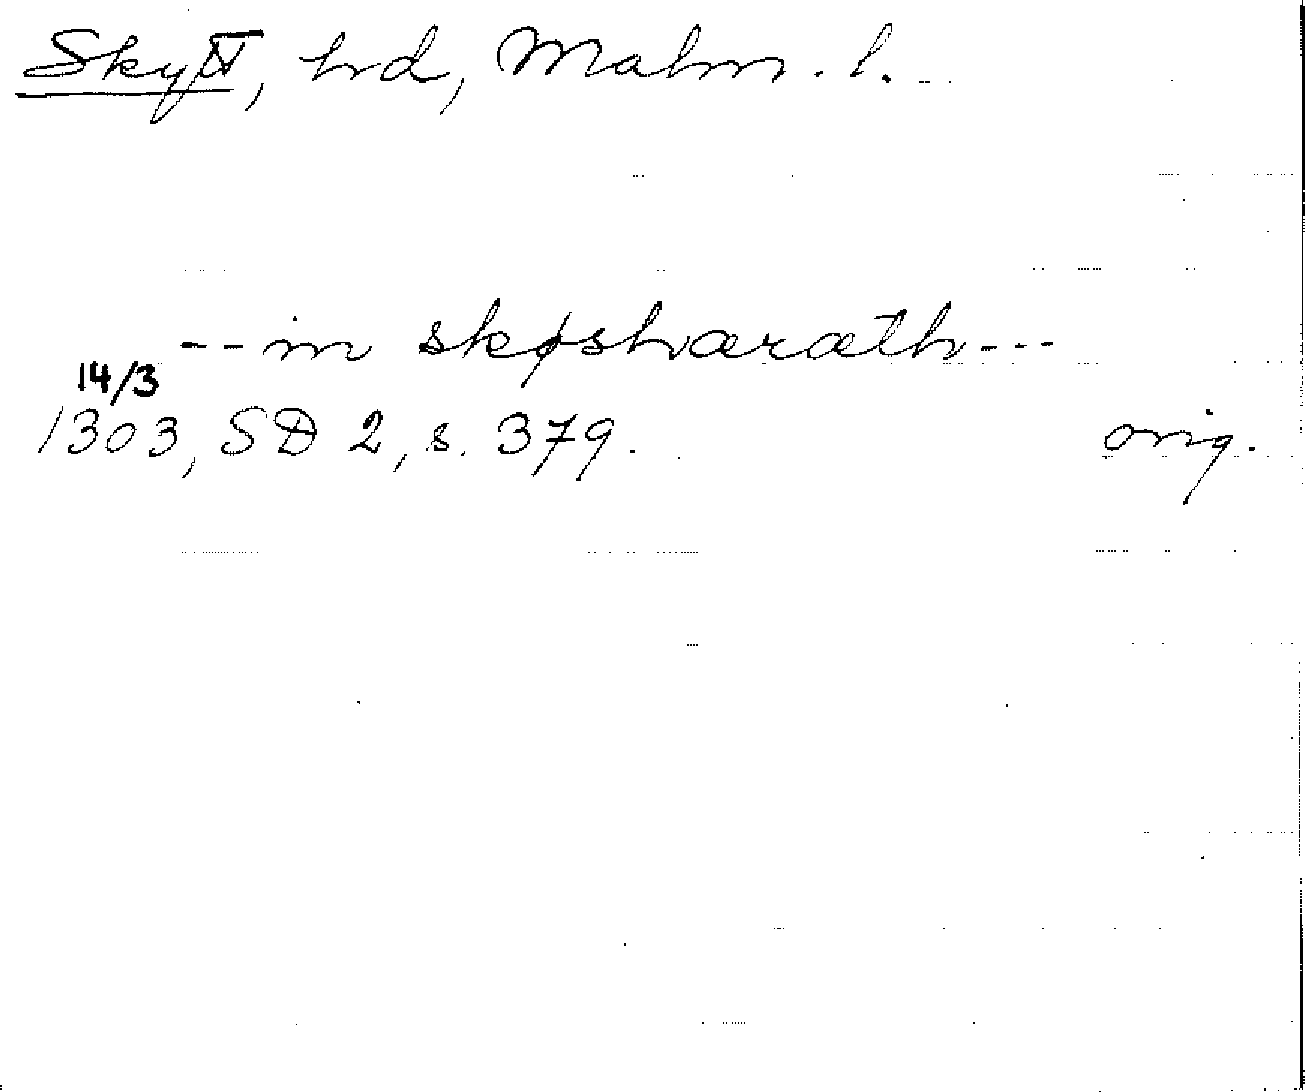 Skytt, hd, Malm. l.
-- in skøshæræth ---
14/3
1303, SD 2, s. 379. orig.